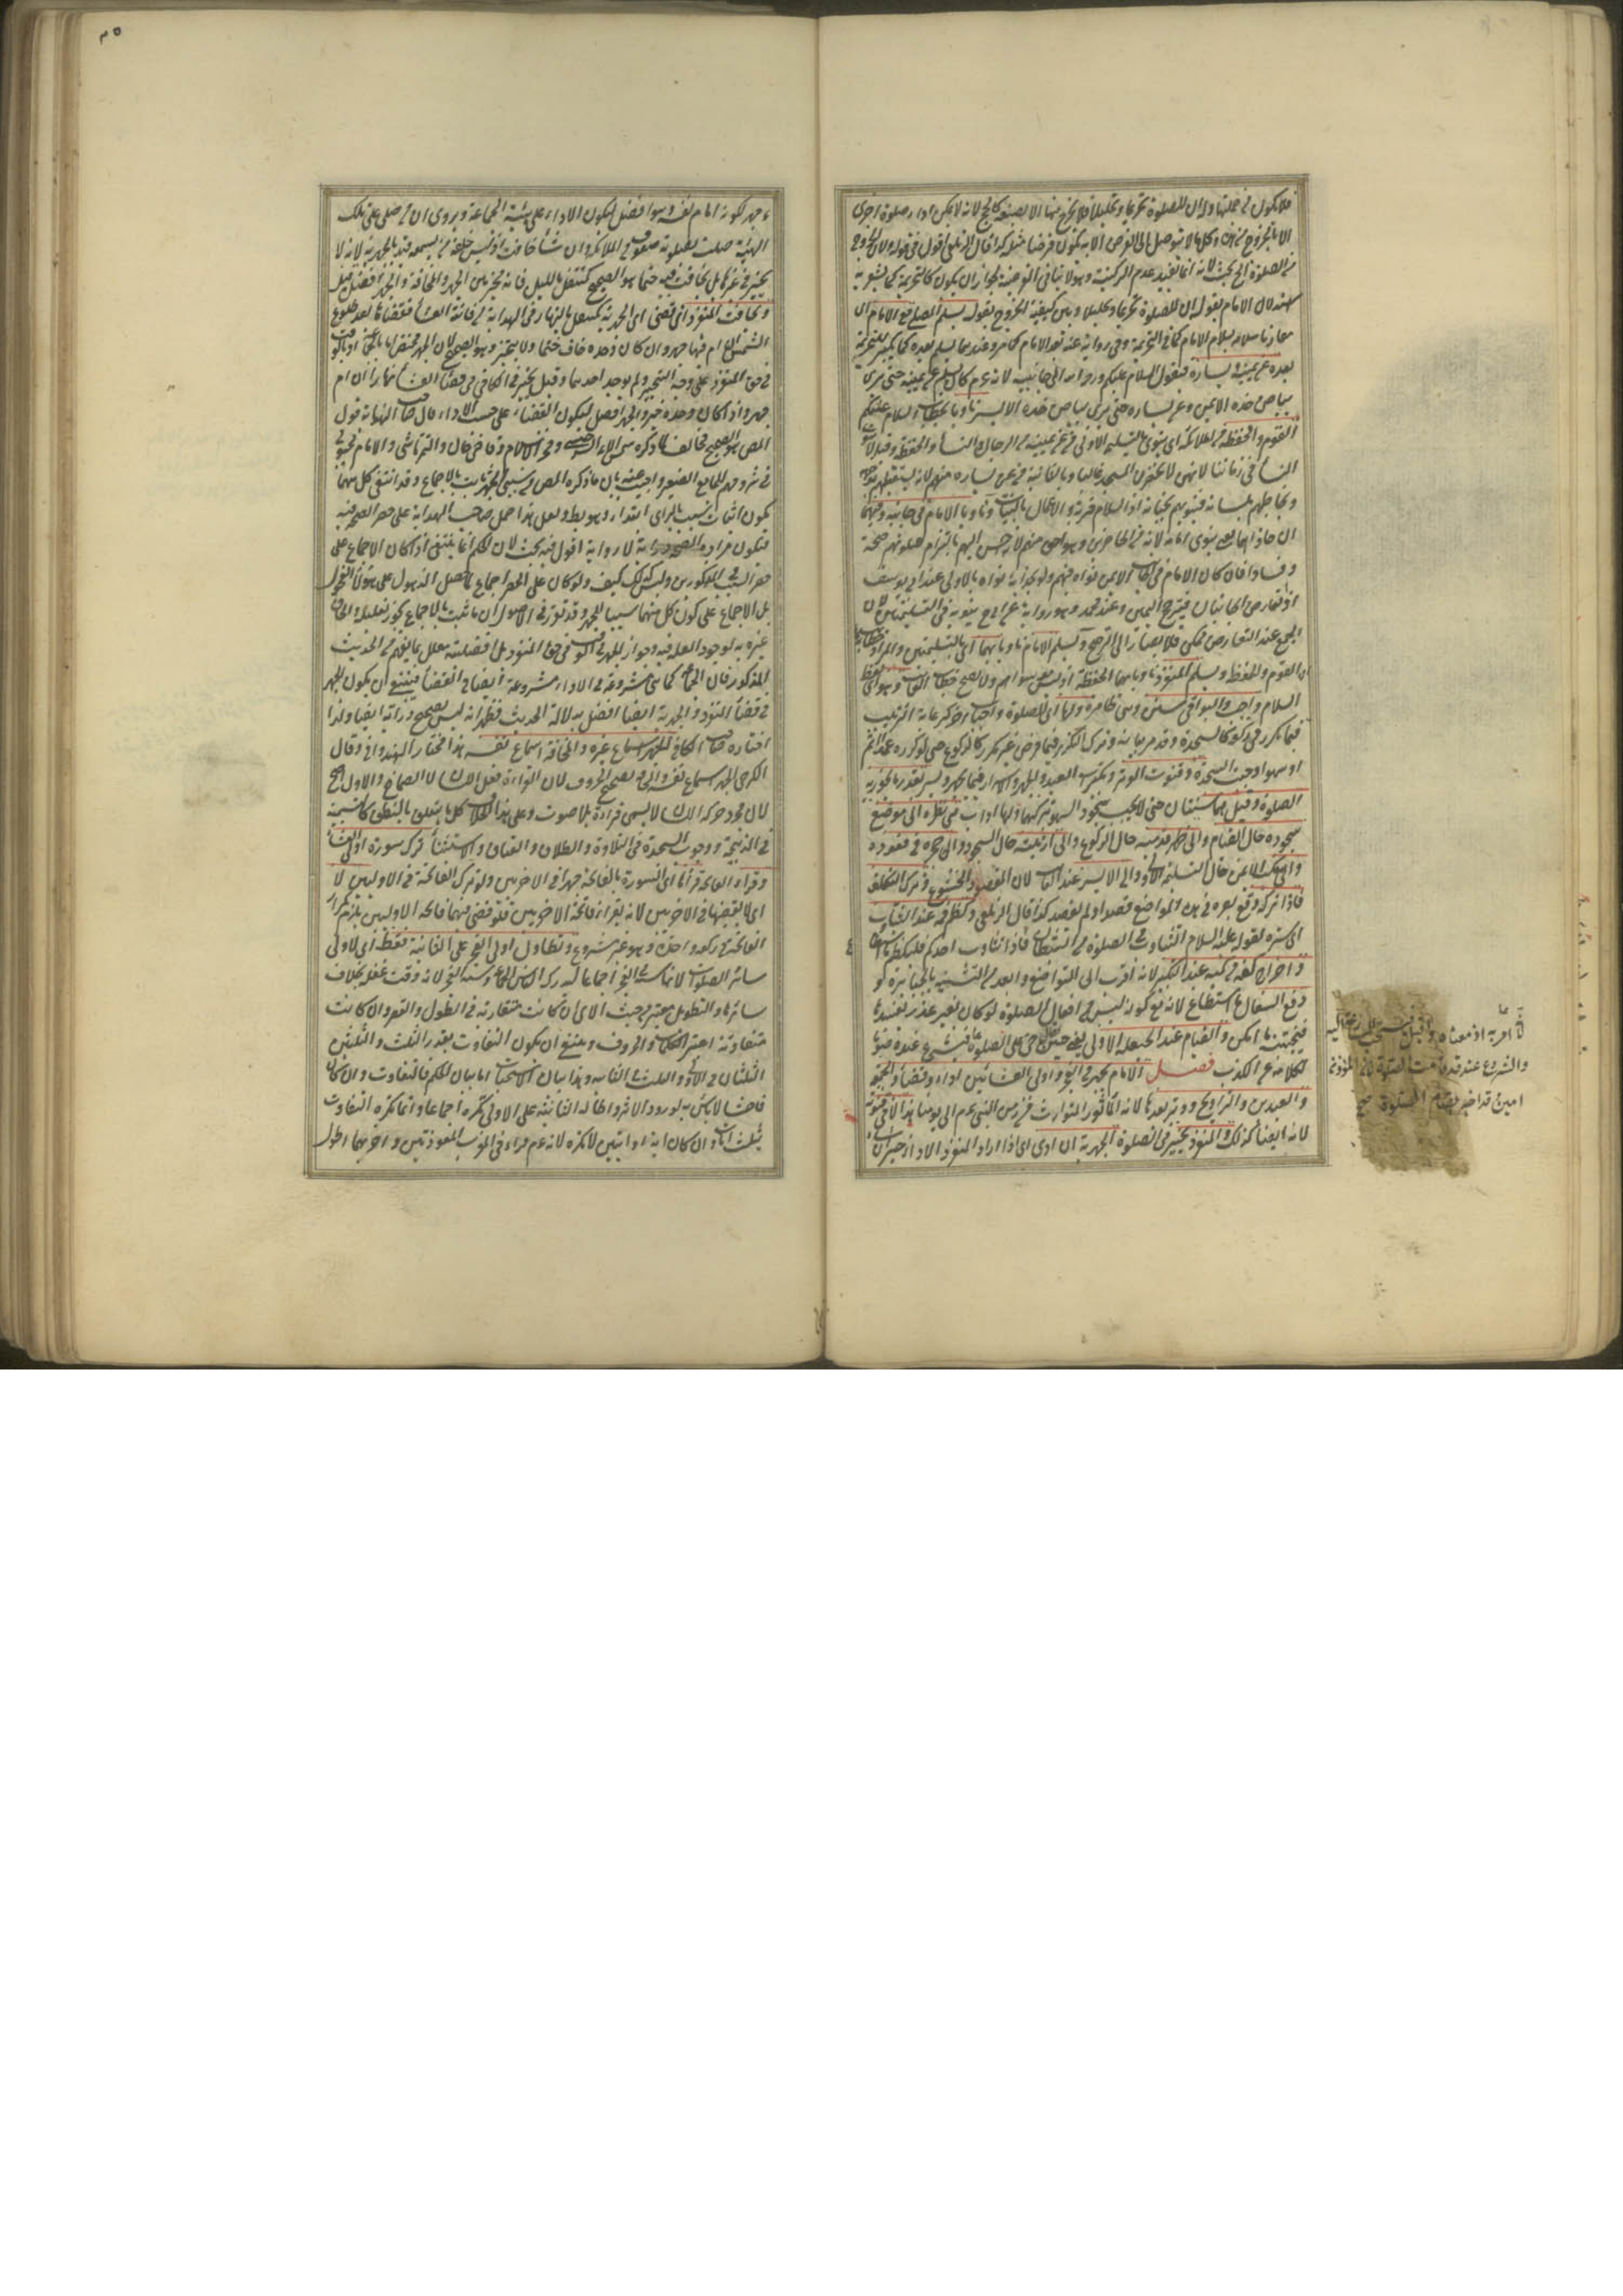 فلا يكون من جملتها وله ان للصلوة تحريما وتحليلا فلا يخرج منها الا بصنعه كالحج لانه لا يمكن اداء صلوة اخرى
الا بالخروج من هذه وكل ما لا يتوصل الى الفرض الا به يكون فرضا مثله كذا قال الزيلعى اقول فى قوله ولان الخروج
من الصلوة الخ بحث لانه انما يفيد عدم الركنية وهو لا ينافى الفرضية لجواز ان يكون كالتحريمة كما يشعر به
استدلال الامام بقوله ان للصلوة تحريما وتحليلا وبين كيفية الخروج بقوله يسلم المصلى مع الامام اى
مقارنا سلامه بسلام الامام كما فى التحريمة وفى رواية عنه بعد الامام كما مر وعندهما يسلم بعده كما يكبر للتحريمة
بعده عن يمينه ويساره فيقول السلام عليكم ورحمة الله الى جانبيه لانه عم كان يسلم عن يمينه حتى يرى
بياض خده الايمن وعن يساره حتى يرى بياض خده الايسر ناويا بخطاب السلام عليكم
القوم والحفظة من الملائكة اى ينوى بالتسليمة الاولى من عن يمينه من الرجال والنساء والحفظة وقيل لا ينوى
النساء فى زماننا لانهن لا يحضرن المسجد غالبا وبالثانية من عن يساره منهم لانه يستقبلهم بوجهه
ويخاطبهم بلسانه فينويهم بجنانه اذ السلام قربة والاعمال بالنيات وناويا الامام فى جانبه وفيهما
ان حاذاه اى ينوى امامه لانه من الحاضرين وهو احق منهم لانه احسن اليهم بالتزام صلوتهم صحة
وفسادا فان كان الامام فى الجانب الايمن نواه فيهم ولو بحذائه نواه بالاولى عند ابى يوسف
اذ تعارض الجانبان فيترجح اليمين وعند محمد وهو رواية عن ابى ح ينويه فى التسليمتين لان
الجمع عند التعارض ممكن فلا يصار الى الترجيح ويسلم الامام ناويا بهما اى بالتسليمتين والمراد خطابهما
القوم والحفظة ويسلم المنفرد ناويا بهما الحفظة اذ ليس معه سواهم ولا يصح خطاب الغائب وهو اى لفظ
السلام واجب والبواقى سنن وهى ظاهرة ولها اى للصلوة واجبات اخر كرعاية الترتيب
فيما تكرر فى ركعة كالسجدة وقد مر بيانه وترك التكرير فيما فرض غير مكرر كالركوع حتى لو كرره عمدا اثم
او سهوا وجبت السجدة وقنوت الوتر وتكبيرات العيد والجهر والاسرار فيما يجهر ويسر بقدر ما تجوز به
الصلوة وقيل هما سنتان حتى لا يجب سجود السهو بتركهما ولها آداب هى نظره الى موضع
سجوده حال القيام والى ظهر قدميه حال الركوع والى ارنبته حال السجود والى حجره فى قعوده
والى منكبه الايمن حال التسليمة الاولى والى الايسر عند الثانية لان المقصود الخشوع وترك التكلف
فاذا تركه وقع بصره فى هذه المواضع قصد او لم يقصد كذا قال الزيلعى وكظم فمه عند التثاؤب
اى ستره لقوله عليه السلام التثاوب فى الصلوة من الشيطان فاذا تثاوب احدكم فليكظم ما استطاع
واخراج كفيه من كميه عند التكبير لانه اقرب الى التواضع وابعد من التشبه بالجبابرة
ودفع السعال ما استطاع لانه مع كونه ليس من افعال الصلوة لو كان بغير عذر يفسدها
فيجتنبه ما امكن والقيام عند الحيعلة الاولى يعنى حين يقال حى على الصلوة والشروع عنده صونا
لكلامه عن الكذب فصل الامام يجهر فى الفجر واولى العشائين اداء وقضاء والجمعة
والعيدين والتراويح ووتر بعدها لانه المأثور المتوارث من زمن النبى عم الى يومنا هذا لا فى قنوته
لانه ايضا كذلك والمنفرد يخير فى الصلوة الجهرية ان ادى اى اذا اراد المنفرد الاداء خير ان شاء
لانه امر به اذ معناه اقبل فيستحب المسارعة اليه
والشروع عند قد قامت الصلوة لان المؤذن
امين وقد اخبر بقيام الصلوة صح
٣٥
جهر لكونه امام نفسه وهو افضل ليكون الاداء على هيئة الجماعة ويروى ان من صلى على تلك
الهيئة صلت بصلوته صفوف من الملائكة وان شاء خافت اذ ليس خلفه من يسمعه قيد بالجهرية لانه لا
يخير فى غيرها بل يخافت فيه حتما هو الصحيح كمتنفل بالليل فانه مخير بين الجهر والمخافتة والجهر افضل
ويخافت المنفرد ان قضى اى الجهرية كمتنفل بالنهار وفى الهداية من فاتته العشاء فقضاها بعد طلوع
الشمس ان ام فيها جهر وان كان وحده خافت حتما ولا يتخير وهو الصحيح لان الجهر مختص اما بالجماعة او بالوقت
فى حق المنفرد على وجه التخيير ولم يوجد احدهما وقيل يخير فى الكافى من قضى العشاء نهارا ان ام
جهر واذا كان وحده خير والجهر افضل ليكون القضاء على حسب الاداء قال صاحب النهاية قول
المص هو الصحيح مخالف لما ذكره شمس الائمة السرخسى وفخر الاسلام وقاضى خان والتمرتاشى والامام المحبوبى
فى شروحهم للجامع الصغير واجيب عنه بان ما ذكره المص من سببى الجهر ثابت بالاجماع وقد انتفى كل منهما
يكون اثبات سبب بالراى ابتداء وهو باطل ولعل هذا حمل صاحب الهداية على حصر الصحة فيه
فيكون مراده الصحيح دراية لا رواية اقول فيه بحث لان الحكم انما ينتفى اذا كان الاجماع على
حصر السبب فى المذكورين وليس كذلك كيف ولو كان على الحصر اجماع لما حصل الذهول على هؤلاء الفحول
بل الاجماع على كون كل منهما سببا للجهر وقد تقرر فى الاصول ان ما ثبت بالاجماع يجوز تعليله والحاق
غيره به لوجود العلة فيه وجواز الجهر فى الوقت فى حق المنفرد بل افضليته معلل بما يفهم من الحديث
المذكور فان الجماعة كما هى مشروعة فى الاداء مشروعة ايضا فى القضاء فينبغى ان يكون الجهر
فى قضاء المنفرد الجهرية ايضا افضل بدلالة الحديث فظهر انه ليس بصحيح دراية ايضا ولذا
اختاره صاحب الكافى الجهر اسماع غيره والمخافتة اسماع نفسه هذا مختار الهندوانى وقال
الكرخى الجهر اسماع نفسه والمخافتة تصحيح الحروف لان القراءة فعل اللسان لا الصماخ والاول اصح
لان مجرد حركة اللسان لا يسمى قراءة بلا صوت وعلى هذا الخلاف كل ما يتعلق بالنطق كالتسمية
فى الذبيحة ووجوب السجدة فى التلاوة والطلاق والعتاق والاستثناء ترك سورة اولى العشاء
وقراء الفاتحة قرأها اى السورة بالفاتحة جهرا فى الاخريين ولو ترك الفاتحة فى الاوليين لا
اى لا يقضيها فى الاخريين لانه يقرأ فاتحة الاخريين فلو قضى فيهما فاتحة الاوليين يلزم تكرار
الفاتحة فى ركعة واحدة وهو غير مشروع وتطال اولى الفجر على الثانية فقط اى لا اولى
سائر الصلوات لانها سنة فى الفجر اجماعا ليدرك الناس الجماعة وسنة الفجر لانه وقت غفلة بخلاف
سائرها والتطويل معتبر من حيث الآى ان كانت متقاربة فى الطول والقصر وان كانت
متفاوتة اعتبر الكلمات والحروف وينبغى ان يكون التفاوت بقدر الثلث والثلثين
الثلثان فى الاولى والثلث فى الثانية وهذا بيان الاستحباب اما بيان الحكم فالتفاوت وان كان
فاحشا لا بأس به لورود الاثر واطالة الثانية على الاولى تكره اجماعا وانما تكره التفاوت
بثلث آيات وان كان آية او آيتين لا تكره لانه عم قراء فى المغرب المعوذتين واخريهما اطول